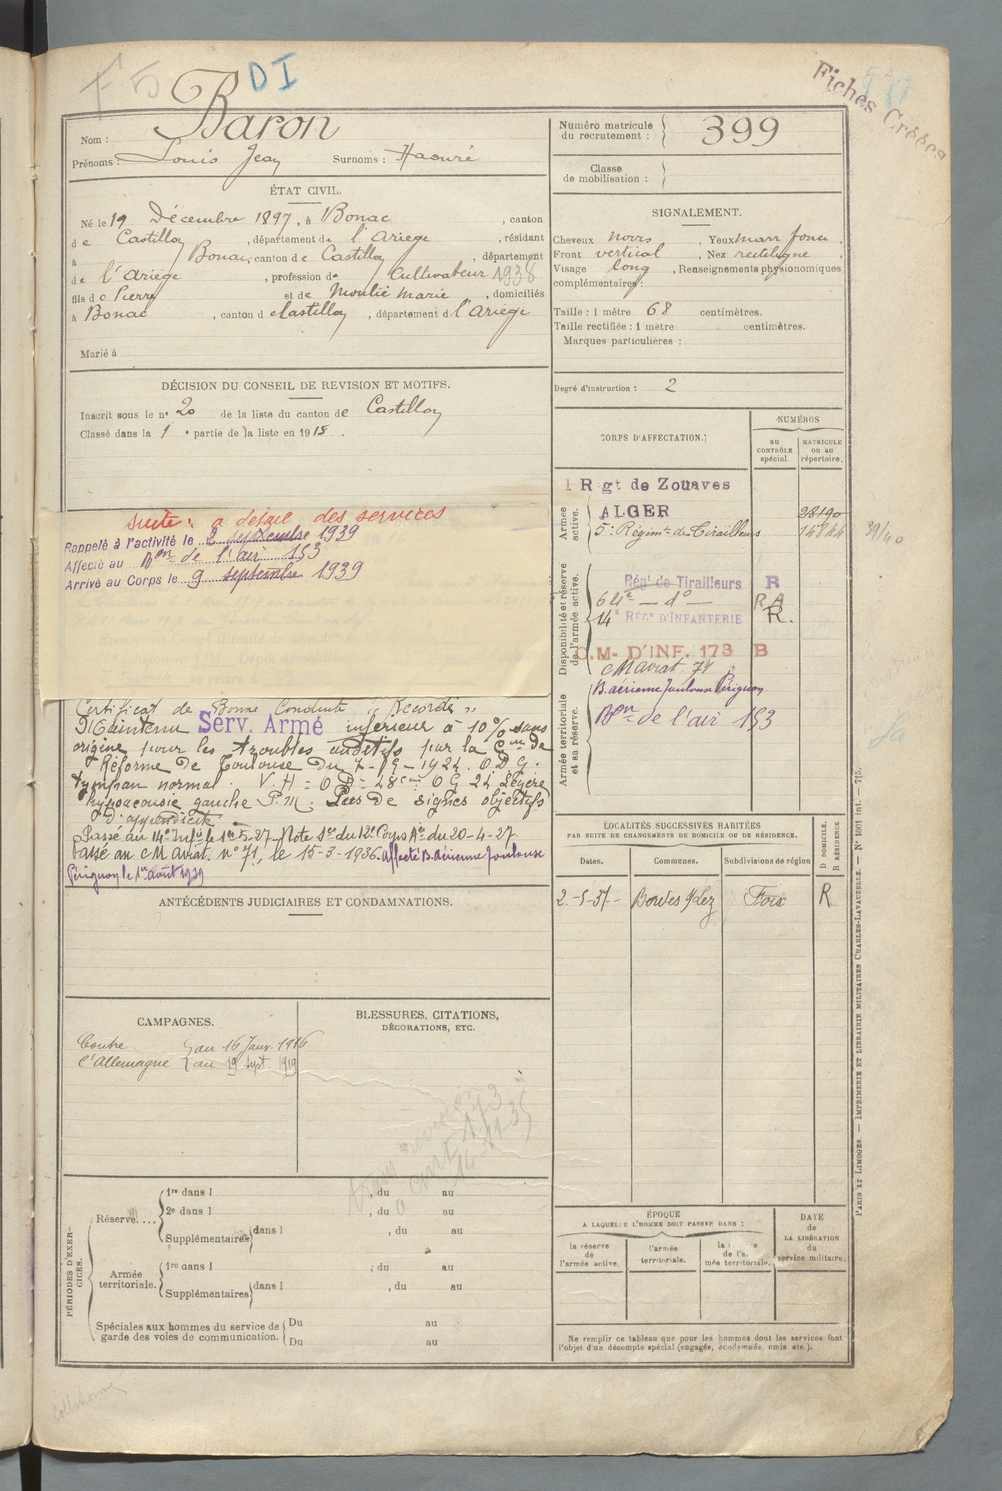 F 5 D I
Fiches Créées
Nom : Baron
Prénoms : Louis Jean Surnoms : Haouré
Numéro matricule du recrutement : 399
Classe de mobilisation :
ÉTAT CIVIL.
Né le 19 Décembre 1897, à Bonac, canton
de Castillon, département de l'Ariège, résidant
à Bonac, canton de Castillon, département
de l'Ariège, profession de Cultivateur 1938
fils de Pierre et de Moulié Marie, domiciliés
à Bonac, canton de Castillon, département de l'Ariège
Marié à
SIGNALEMENT.
Cheveux noirs, Yeux marr foncé.
Front vertical, Nez rectiligne,
Visage long, Renseignements physionomiques
complémentaires :
Taille : 1 mètre 68 centimètres.
Taille rectifiée : 1 mètre centimètres.
Marques particulières :
Degré d'instruction : 2
DÉCISION DU CONSEIL DE REVISION ET MOTIFS.
Inscrit sous le n° 20 de la liste du canton de Castillon
Classé dans la 1e partie de la liste en 1918.
CORPS D'AFFECTATION.
NUMÉROS
au CONTRÔLE spécial.
MATRICULE ou au répertoire.
Armée active.
1 Rgt de Zouaves
ALGER 28190
5e Régimt de Tirailleurs 14844 39/40
Disponibilité et réserve de l'armée active.
Régt de Tirailleurs R
64e — do — RA
14e REGt D'INFANTERIE R.
C.M- D'INF. 173 B
CM aviat. 71
Armée territoriale et sa réserve.
B. aérienne Toulouse Pérignon
Bon de l'air 153
Suite : a détail des services
Rappelé à l'activité le 2 septembre 1939
Affecté au Bon de l'air 153
Arrivé au Corps le 9 septembre 1939
Certificat de Bonne Conduite "Accordé"
Maintenu Serv. Armé inférieur à 10% sans
origine pour les troubles auditifs par la Con de
Réforme de Toulouse du O D G.
tympan normal V.H = O D = 48cm O G 24 Légère
hypoacousie gauche P.M. Pas de signes objectifs
d'appendicite
Passé au 14e Infie le 1er 5-27 Note du 20-4-27
Passé au CM aviat. n° 71, le 15-3-1936. affecté B. aérienne Toulouse
Pérignon le 1er août 1939
ANTÉCÉDENTS JUDICIAIRES ET CONDAMNATIONS.
LOCALITÉS SUCCESSIVES HABITÉES
PAR SUITE DE CHANGEMENTS DE DOMICILE OU DE RÉSIDENCE.
Dates. Communes. Subdivisions de région D DOMICILE. R RÉSIDENCE
2-5-37 Bordes s/Lez Foix R
CAMPAGNES.
Contre du 16 Janv. 1916
l'Allemagne au 19 Sept. 1919
BLESSURES, CITATIONS,
DÉCORATIONS, ETC.
PÉRIODES D'EXERCICES.
Réserve....
1re dans l , du au
2e dans l , du au
Supplémentaires dans l , du au
Armée territoriale.
1re dans l , du au
Supplémentaires dans l , du au
Spéciales aux hommes du service de garde des voies de communication.
Du au
Du au
ÉPOQUE
A LAQUELLE L'HOMME DOIT PASSER DANS :
la réserve de l'armée active.
l'armée territoriale.
DATE de LA LIBÉRATION du service militaire.
Ne remplir ce tableau que pour les hommes dont les services font
l'objet d'un décompte spécial (engagés, condamnés, omis etc.).
PARIS ET LIMOGES. — IMPRIMERIE ET LIBRAIRIE MILITAIRES CHARLES-LAVAUZELLE. — N° 1001 int. — 715.